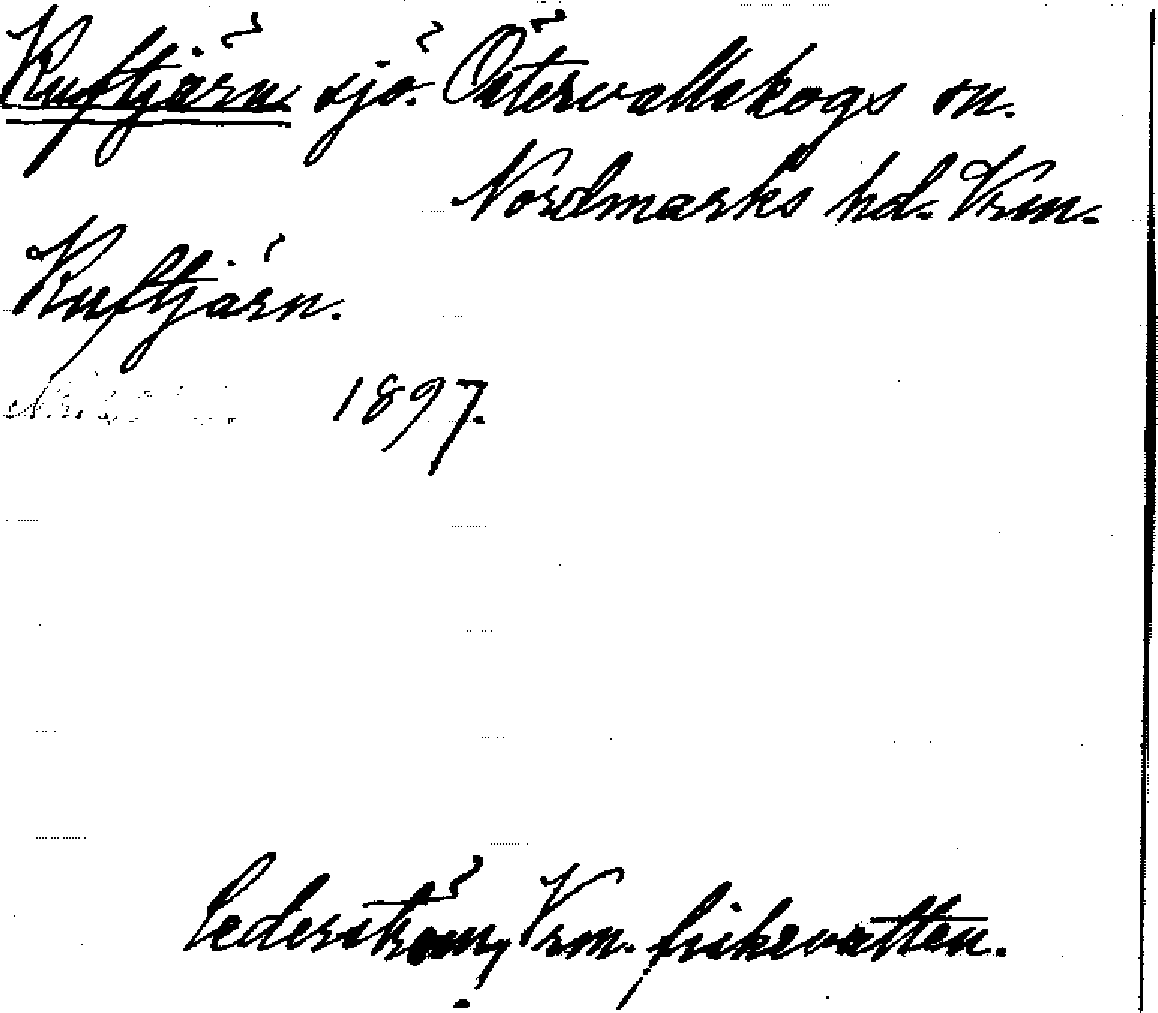 Kuftjärn sjö. Östervallskogs sn.
Nordmarks hd. Vrm.
Kuftjärn.
1897.
Cederström, Vrm. fiskevatten.